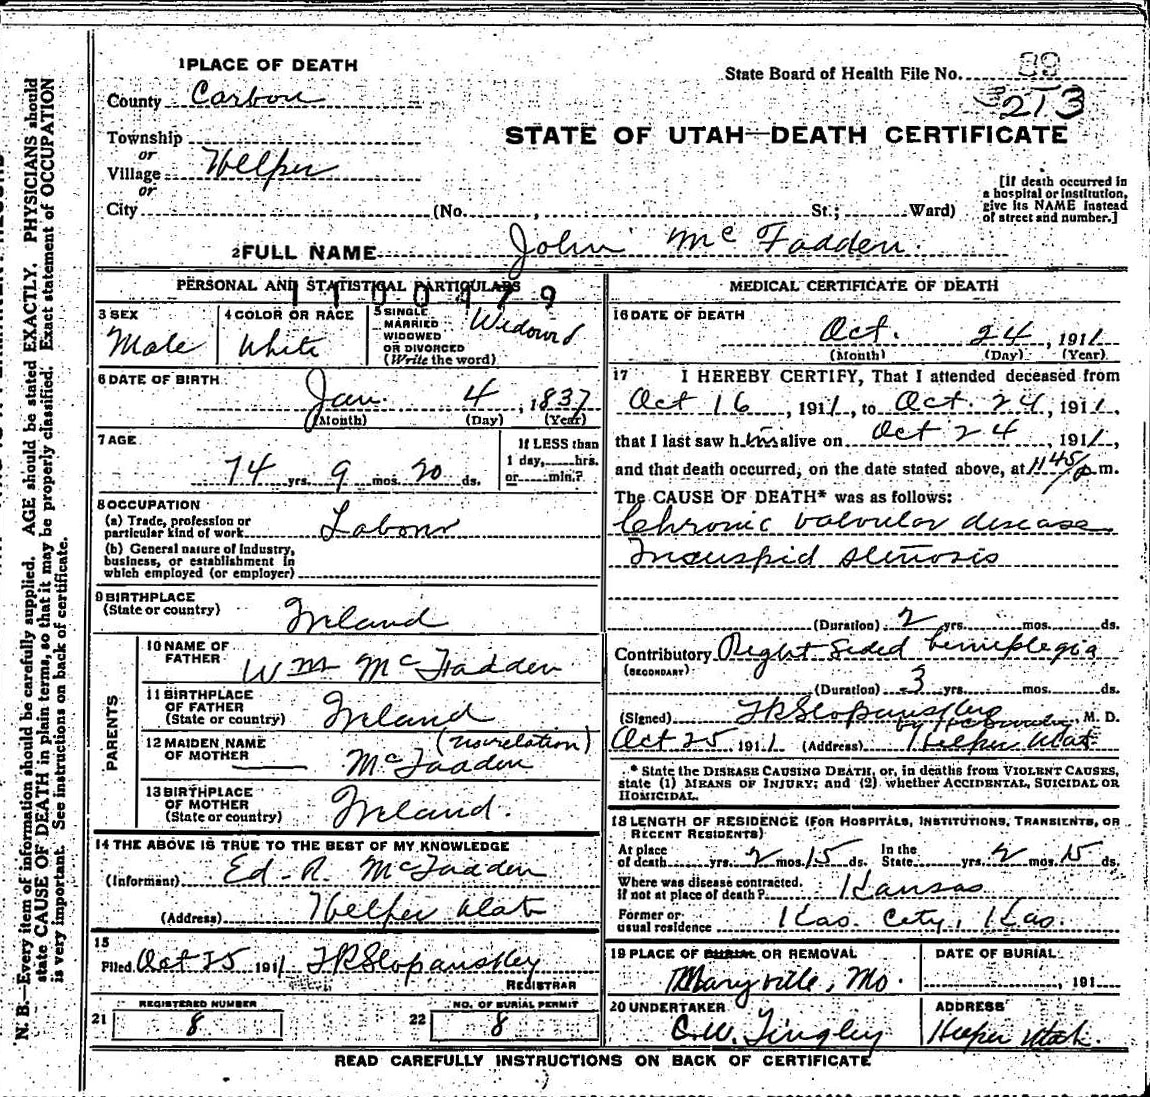 N. B.—Every item of information should be carefully supplied. AGE should be stated EXACTLY. PHYSICIANS should
state CAUSE OF DEATH in plain terms, so that it may be properly classified. Exact statement of OCCUPATION
is very important. See instructions on back of certificate.
1 PLACE OF DEATH
State Board of Health File No. 89
County Carbon
3213
STATE OF UTAH—DEATH CERTIFICATE
Township
or
Village Helper
or
City (No. , St.; Ward)
[If death occurred in
a hospital or institution,
give its NAME instead
of street and number.]
2 FULL NAME John McFadden.
PERSONAL AND STATISTICAL PARTICULARS
1100479
3 SEX
Male
4 COLOR OR RACE
White
5 SINGLE
MARRIED
WIDOWED
OR DIVORCED
(Write the word)
Widowed
6 DATE OF BIRTH
Jan. 4, 1837
(Month) (Day) (Year)
7 AGE
74 yrs. 9 mos. 20 ds.
If LESS than
1 day, hrs.
or min.?
8 OCCUPATION
(a) Trade, profession or
particular kind of work Labour
(b) General nature of industry,
business, or establishment in
which employed (or employer)
9 BIRTHPLACE
(State or country) Ireland
PARENTS
10 NAME OF
FATHER Wm McFadden
11 BIRTHPLACE
OF FATHER
(State or country) Ireland
12 MAIDEN NAME
OF MOTHER McFadden
(no relation)
13 BIRTHPLACE
OF MOTHER
(State or country) Ireland.
14 THE ABOVE IS TRUE TO THE BEST OF MY KNOWLEDGE
(Informant) Ed. R. McFadden
(Address) Helper Utah
15
Filed Oct 25 1911
REGISTRAR
REGISTERED NUMBER
21 8
NO. OF BURIAL PERMIT
22 8
MEDICAL CERTIFICATE OF DEATH
16 DATE OF DEATH
Oct. 24, 1911
(Month) (Day) (Year)
17 I HEREBY CERTIFY, That I attended deceased from
Oct 16, 1911, to Oct. 24, 1911,
that I last saw him alive on Oct 24, 1911,
and that death occurred, on the date stated above, at 11 45/p m.
The CAUSE OF DEATH* was as follows:
Chronic valvular disease
stenosis
(Duration) 2 yrs. mos. ds.
Contributory Right sided hemiplegia
(SECONDARY)
(Duration) 3 yrs. mos. ds.
(Signed) M. D.
Oct 25 1911 (Address) Helper Utah
* State the DISEASE CAUSING DEATH, or, in deaths from VIOLENT CAUSES,
state (1) MEANS OF INJURY; and (2) whether ACCIDENTAL, SUICIDAL OR
HOMICIDAL.
18 LENGTH OF RESIDENCE (FOR HOSPITALS, INSTITUTIONS, TRANSIENTS, OR
RECENT RESIDENTS)
At place
of death yrs. 2 mos. 15 ds.
In the
State yrs. 2 mos. 15 ds.
Where was disease contracted,
if not at place of death? Kansas
Former or
usual residence Kas. City, Kas.
19 PLACE OF BURIAL OR REMOVAL
Maryville, Mo.
DATE OF BURIAL
, 191
20 UNDERTAKER
C. W. Tingley
ADDRESS
Helper Utah.
READ CAREFULLY INSTRUCTIONS ON BACK OF CERTIFICATE